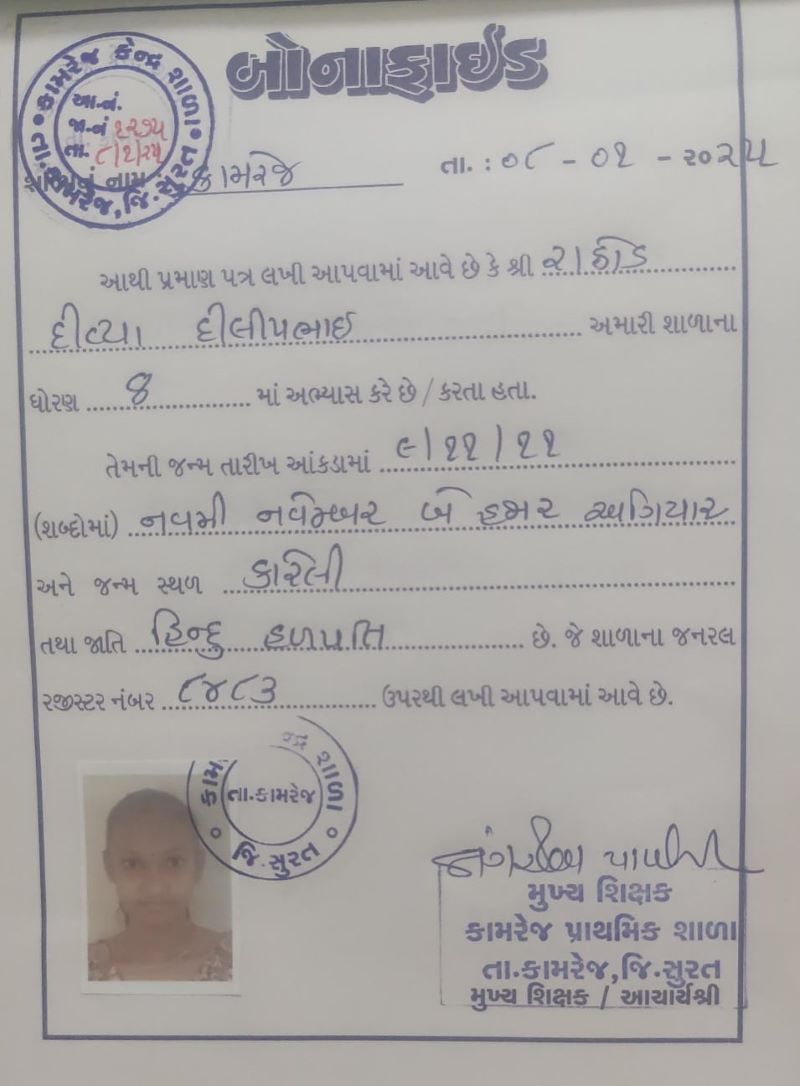 બોનાફાઈડ
કામરેજ કેન્દ્ર શાળા
તા. કામરેજ, જિ. સુરત
આ.નં.
જા.નં ૧૨૭૫
તા. ૮/૧/૨૫
શાળાનું નામ : કામરેજ
તા. : ૦૮ - ૦૧ - ૨૦૨૫
આથી પ્રમાણ પત્ર લખી આપવામાં આવે છે કે શ્રી રાઠોડ
દીવ્યા દીલીપભાઈ અમારી શાળાના
ધોરણ 8 માં અભ્યાસ કરે છે / કરતા હતા.
તેમની જન્મ તારીખ આંકડામાં ૯/૧૧/૧૧
(શબ્દોમાં) નવમી નવેમ્બર બે હજાર અગિયાર
અને જન્મ સ્થળ કારેલી
તથા જાતિ હિન્દુ હળપતિ છે. જે શાળાના જનરલ
રજીસ્ટર નંબર ૮૪૮૩ ઉપરથી લખી આપવામાં આવે છે.
તા.કામરેજ
જિ.સુરત
મુખ્ય શિક્ષક
કામરેજ પ્રાથમિક શાળા
તા.કામરેજ,જિ.સુરત
મુખ્ય શિક્ષક / આચાર્યશ્રી